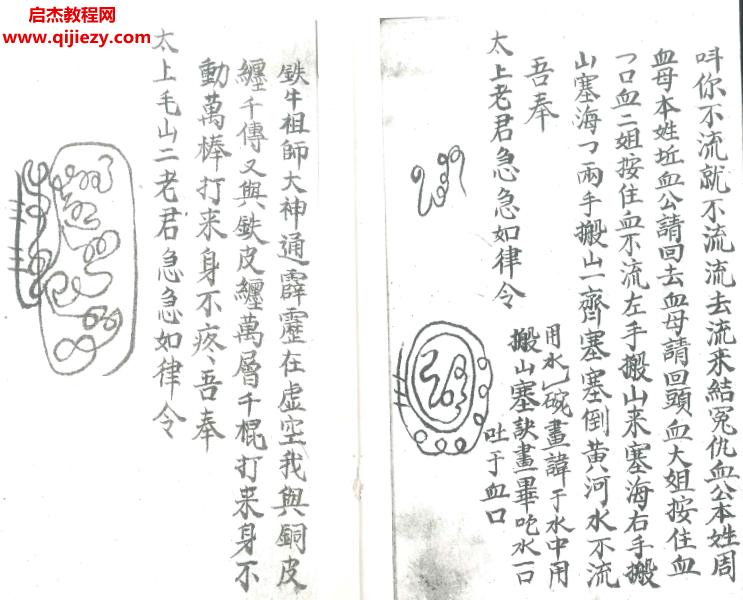 启杰教程网
www.qijiezy.com
呌你不流就不流流去流来結冤仇血公本姓周
血母本姓坵血公請回去血母請回頭血大姐按住血
乛口血二姐按住血不流左手搬山来塞海右手搬
山塞海乛兩手搬山一齊塞塞倒黄河水不流
吾奉
太上老君急急如律令
用水乚碗畫諱于水中用
搬山塞訣畫畢吃水一口
吐于血口
鉄牛祖師大神通霹靂在虚空我與銅皮
纏千傳又與鉄皮纏萬層千棍打来身不
動萬棒打来身不疼〻吾奉
太上毛山二老君急急如律令